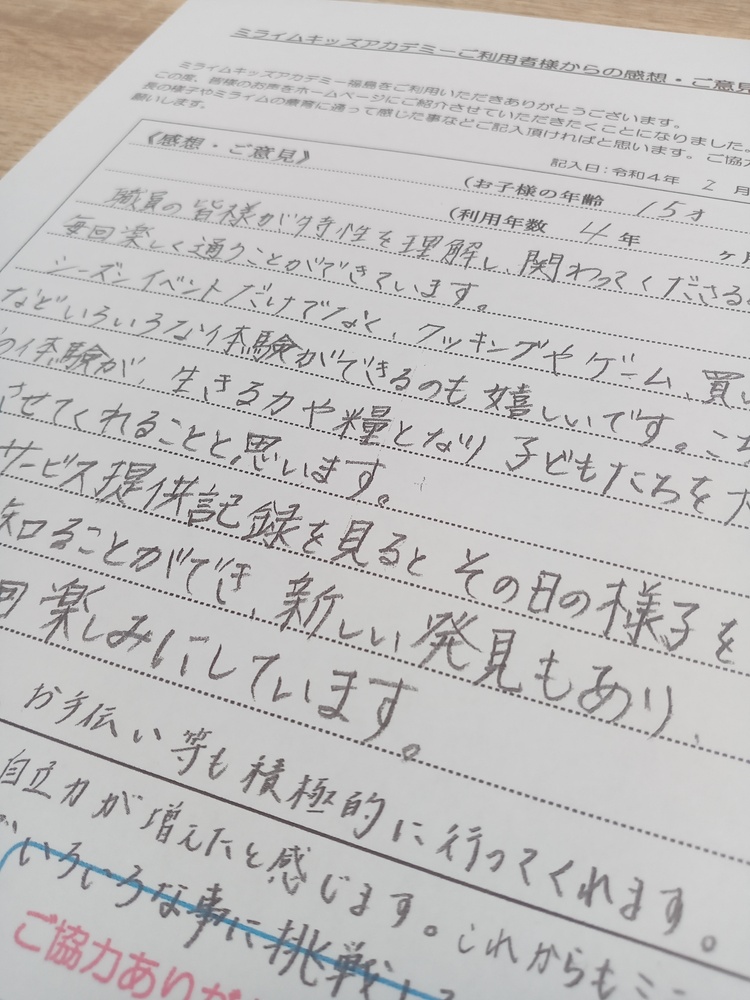 ミライムキッズアカデミーご利用者様からの感想・ご意見
ミライムキッズアカデミー福島をご利用いただきありがとうございます。
この度、皆様のお声をホームページにご紹介させていただきたくことになりました。
長の様子やミライムの療育に通って感じた事などご記入頂ければと思います。ご協力
願いします。
記入日:令和4年 2 月
《感想・ご意見》
(お子様の年齢 15才
(利用年数 4 年 ヶ月
職員の皆様が特性を理解し、関わってくださる
毎回楽しく通うことができています。
シーズンイベントだけでなく、クッキングやゲーム、買い
などいろいろな体験ができるのも嬉しいです。こち
の体験が、生きる力や糧となり子どもたちを
させてくれることと思います。
サービス提供記録を見るとその日の様子を
知ることができ、新しい発見もあり、
回楽しみにしています。
お手伝い等も積極的に行ってくれます。
自立力が増えたと感じます。これからもミ
いろいろな事に挑戦
ご協力ありが